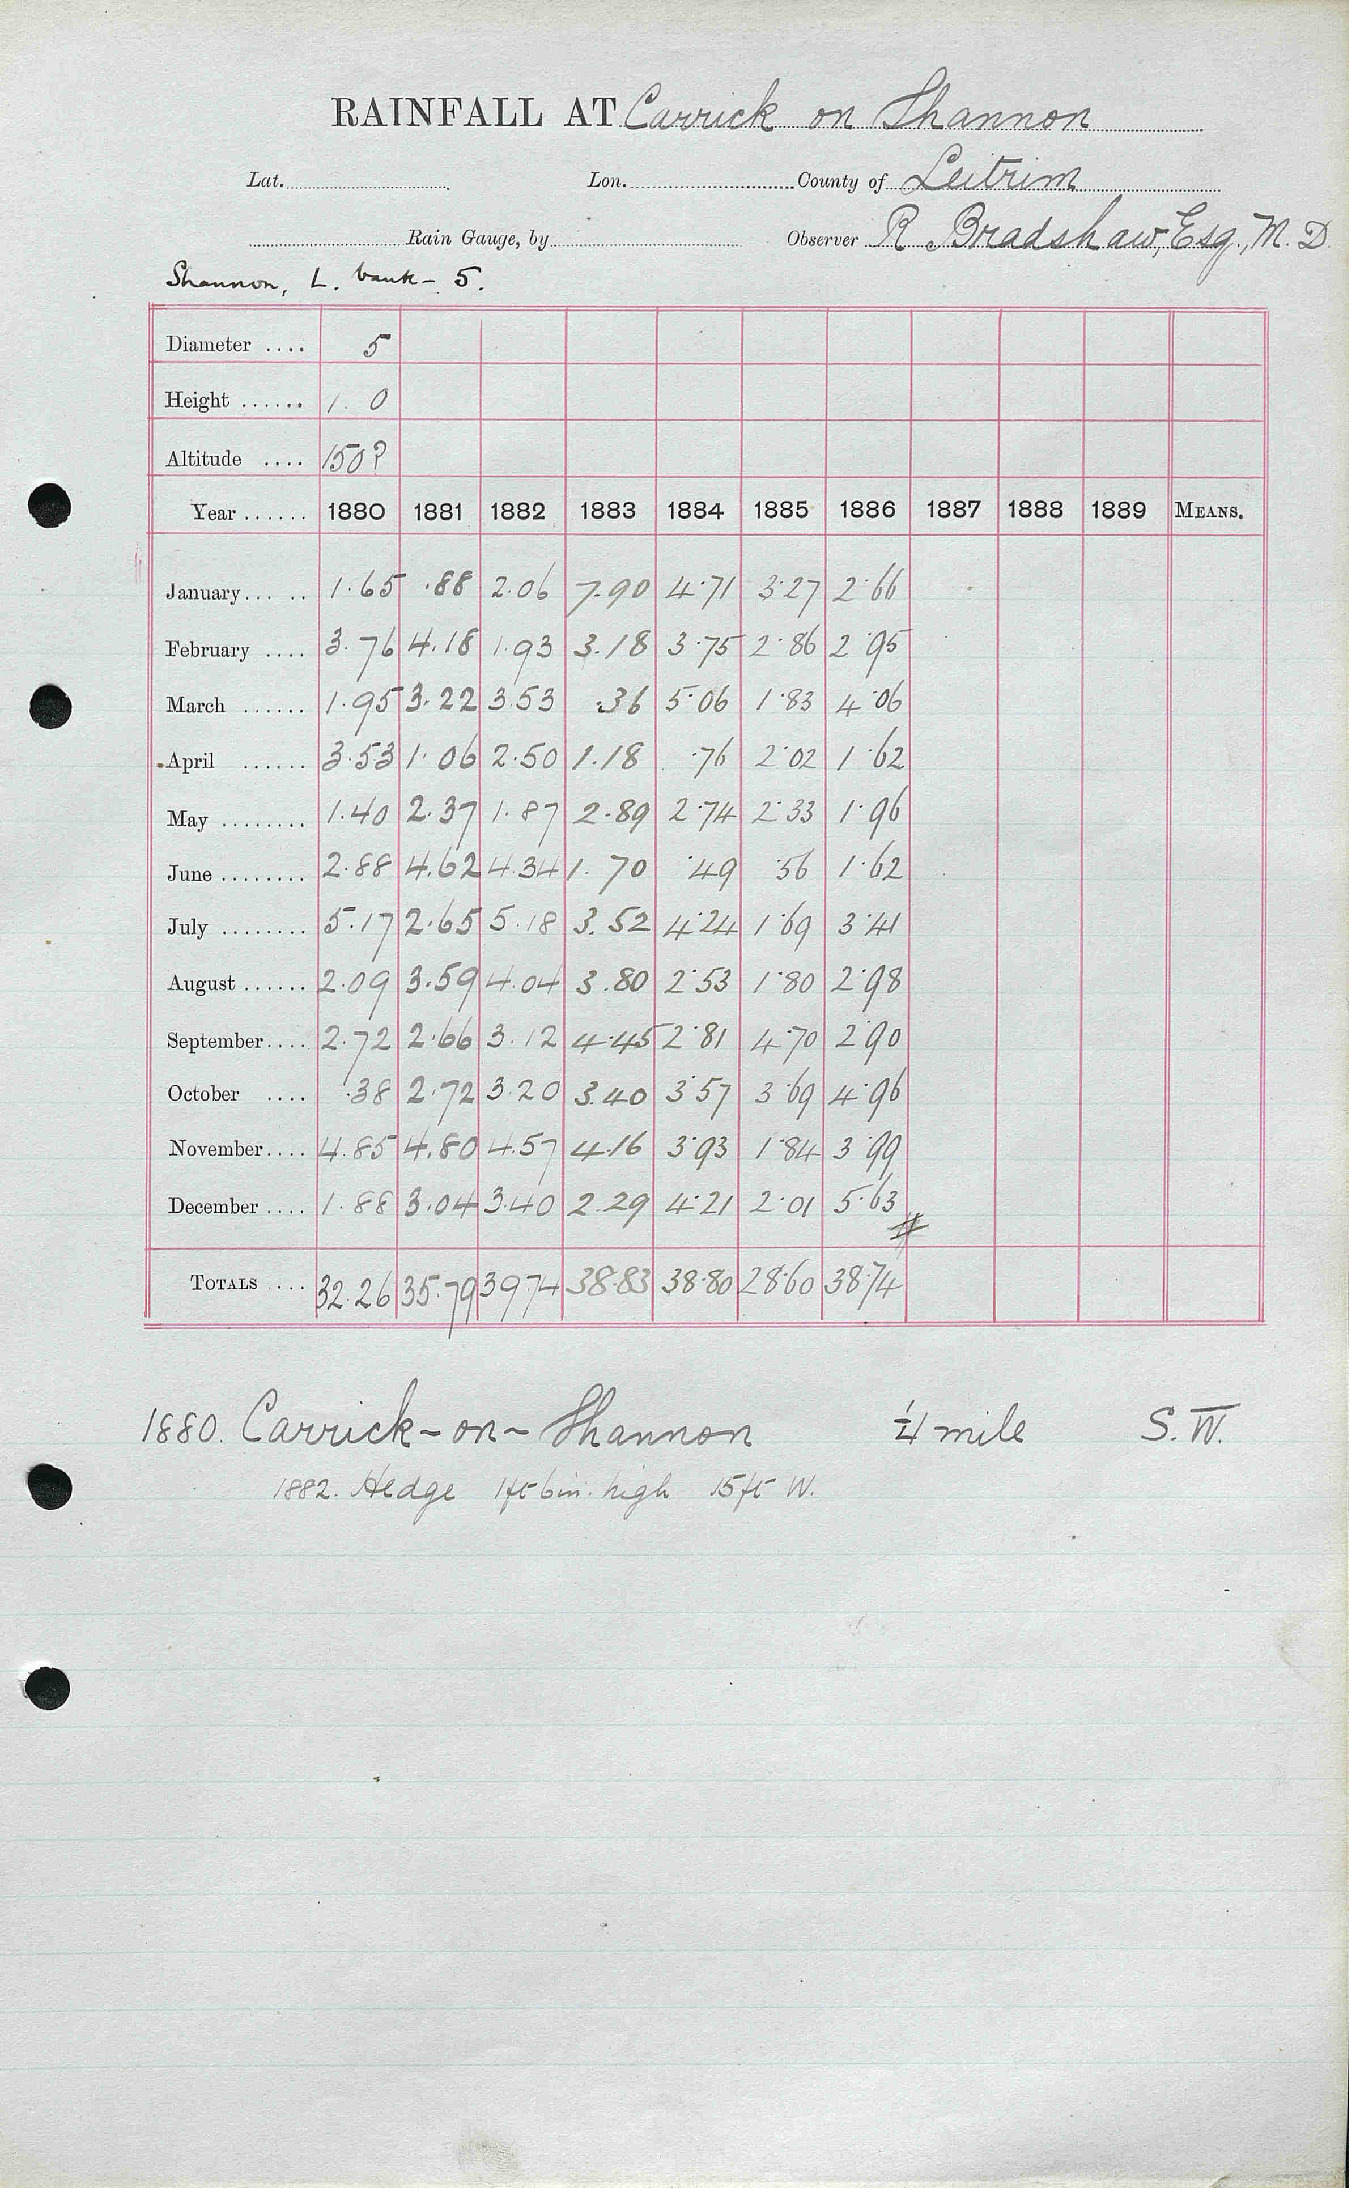 RAINFALL AT Carrick on Shannon
Lat. Lon. County of Leitrim
Rain Gauge, by Observer R. Bradshaw, Esq., M.D
Shannon, L. bank - 5.
Diameter .... 5
Height ...... 1. 0
Altitude .... 150?
Year ...... 1880 1881 1882 1883 1884 1885 1886 1887 1888 1889 MEANS.
January... .. 1.65 .88 2.06 7.90 4.71 3.27 2.66
February .... 3.76 4.18 1.93 3.18 3.75 2.86 2.95
March ...... 1.95 3.22 3.53 .36 5.06 1.83 4.06
April ...... 3.53 1.06 2.50 1.18 .76 2.02 1.62
May ........ 1.40 2.37 1.87 2.89 2.74 2.33 1.96
June ........ 2.88 4.62 4.34 1.70 .49 .56 1.62
July ........ 5.17 2.65 5.18 3.52 4.24 1.69 3.41
August ...... 2.09 3.59 4.04 3.80 2.53 1.80 2.98
September.... 2.72 2.66 3.12 4.45 2.81 4.70 2.90
October .... .38 2.72 3.20 3.40 3.57 3.69 4.96
November.... 4.85 4.80 4.57 4.16 3.93 1.84 3.99
December .... 1.88 3.04 3.40 2.29 4.21 2.01 5.63
#
TOTALS .... 32.26 35.79 39.74 38.83 38.80 28.60 38.74
1880. Carrick-on-Shannon ¼ mile S.W.
1882. Hedge 1ft 6in. high 15ft W.